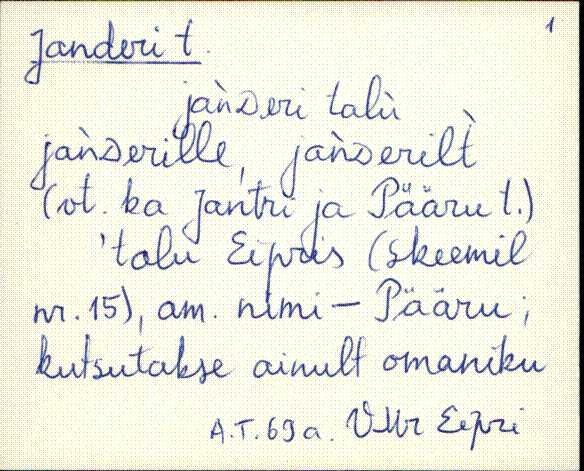 1
Janderi t.
jàǹᴅeri talù
jàǹᴅerille, jàǹᴅerilt̀
(vt. ka Jantri ja Pääru t.)
'talu Eipris (skeemil
nr. 15), am. nimi — Pääru;
kutsutakse ainult omaniku
A.T. 69 a. VMr Eipri